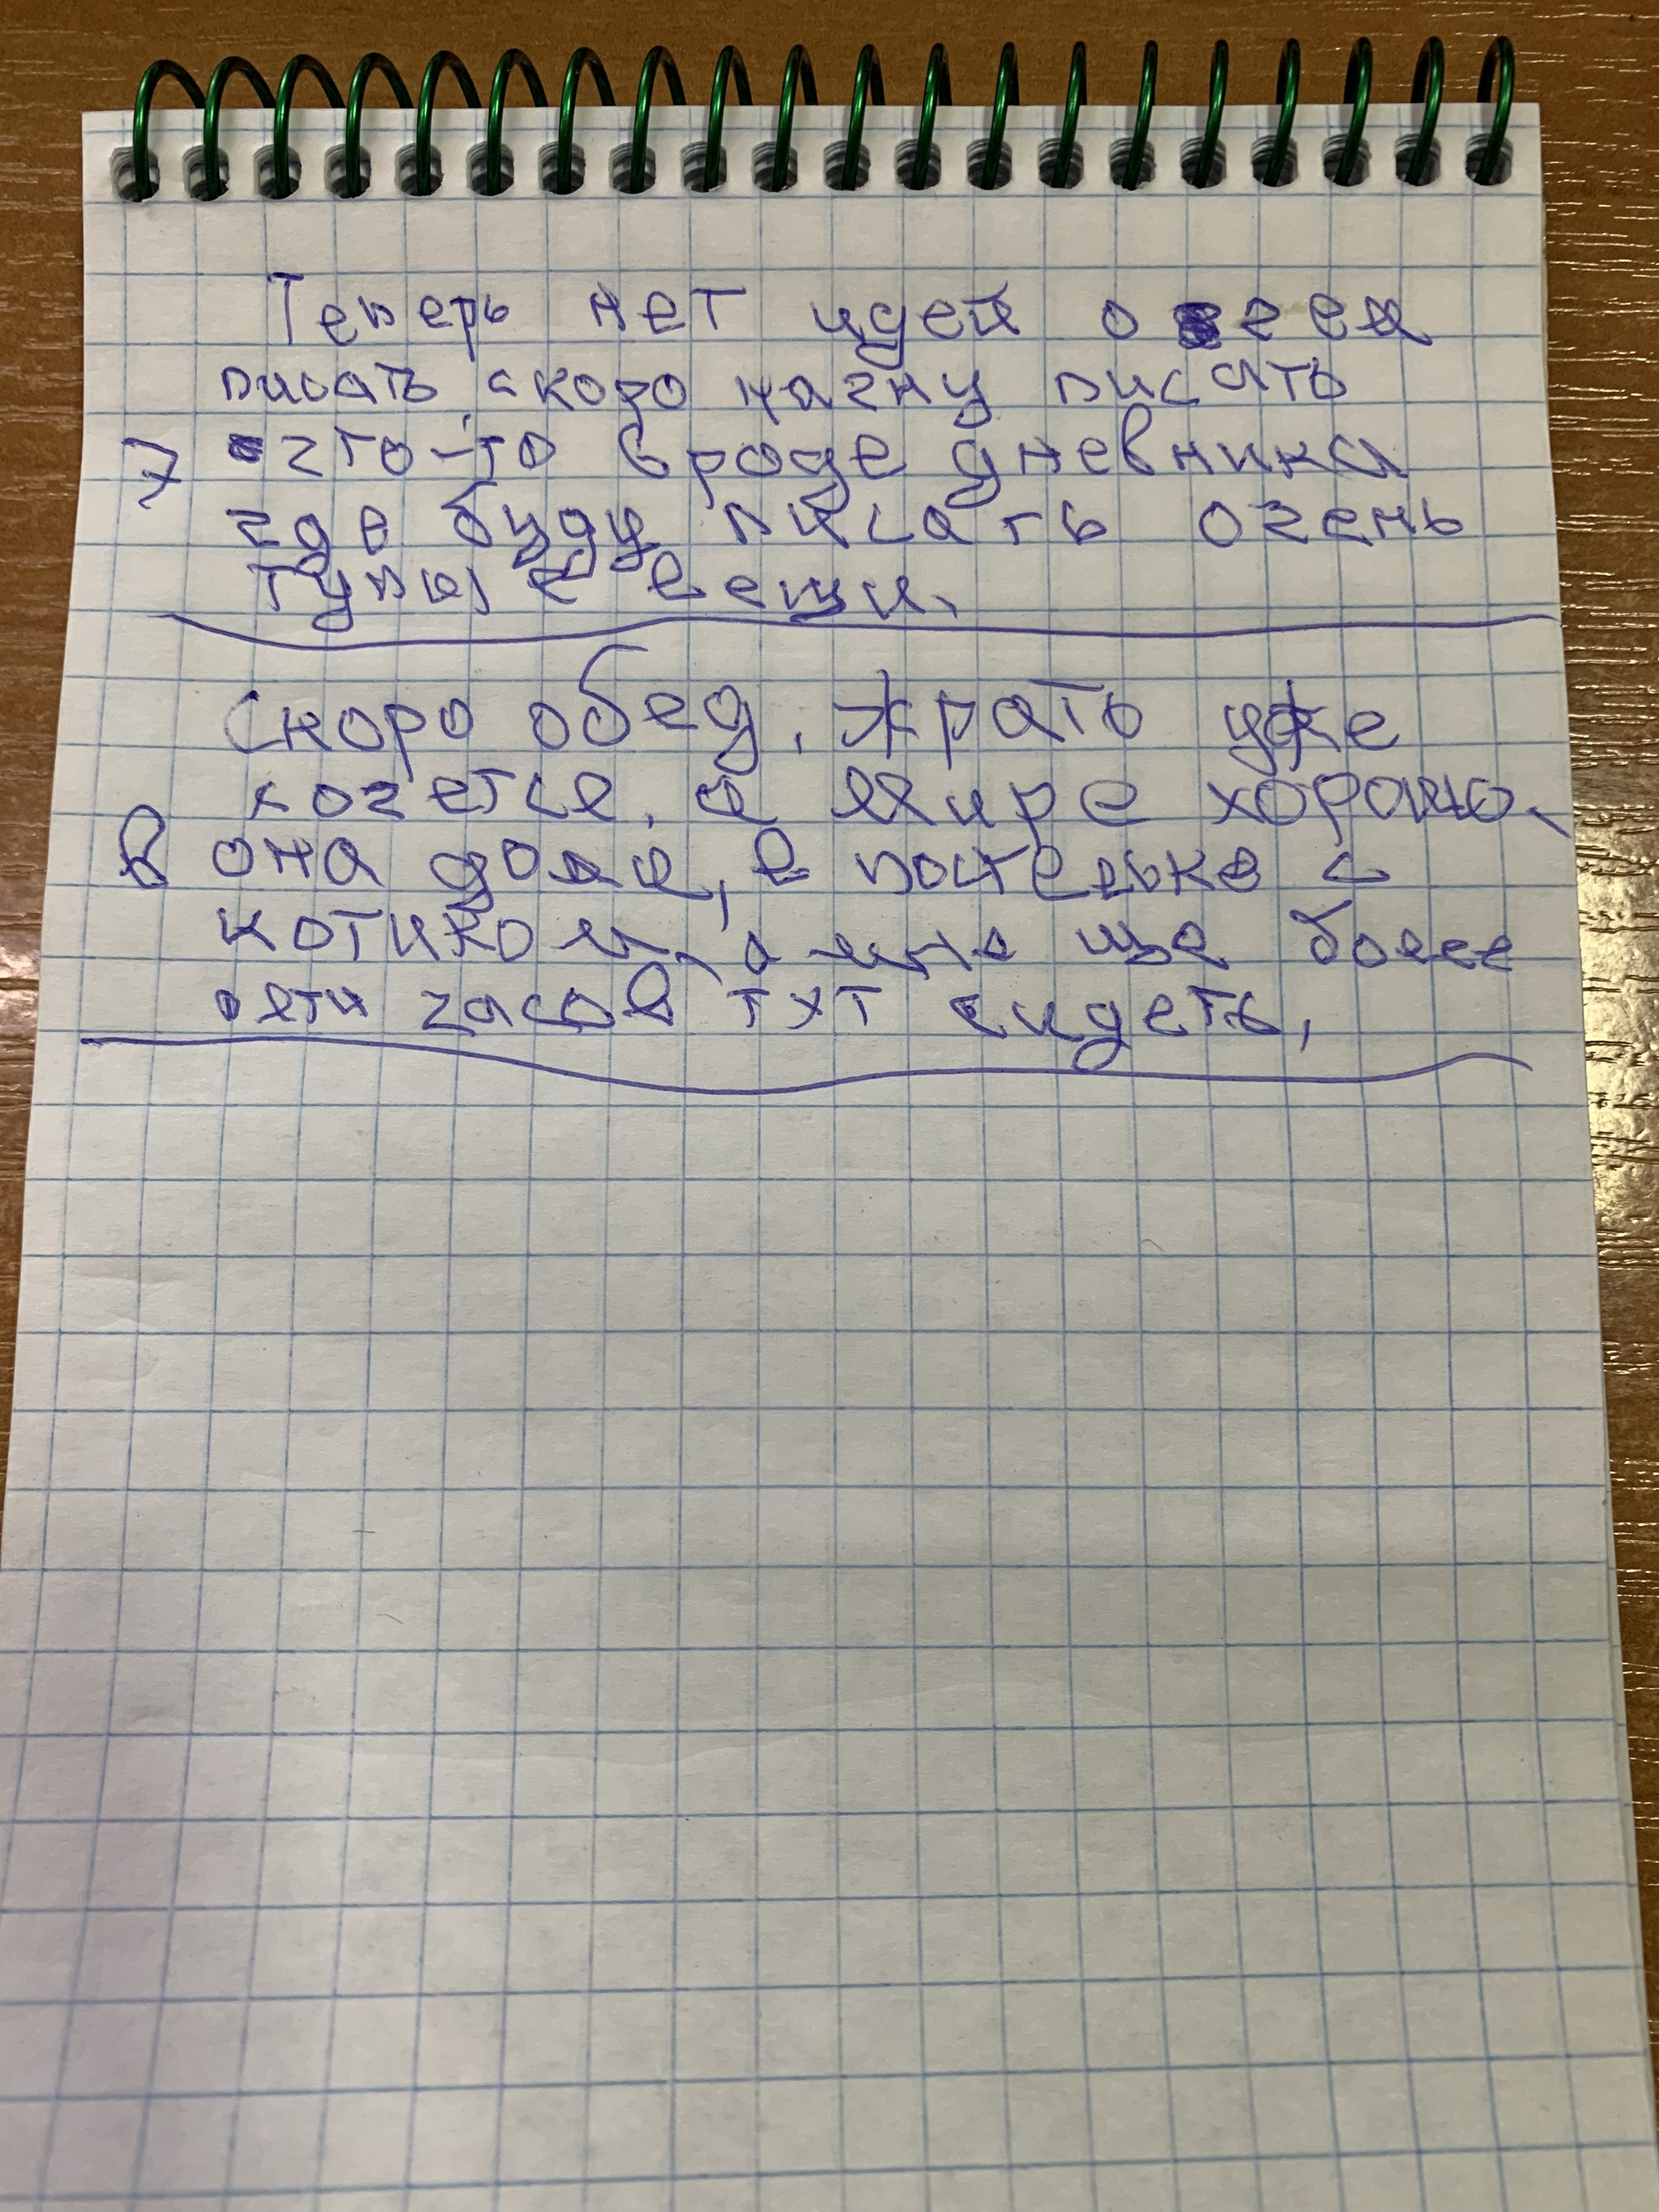 Теперь нет идей о чем
писать, скоро начну писать
7 что-то вроде дневника
где буду писать очень
тупые вещи.
Скоро обед, жрать уже
хочется, а Мире хорошо,
8 она дома, в постельке с
котиком, а мне ще более
пяти часов тут сидеть,